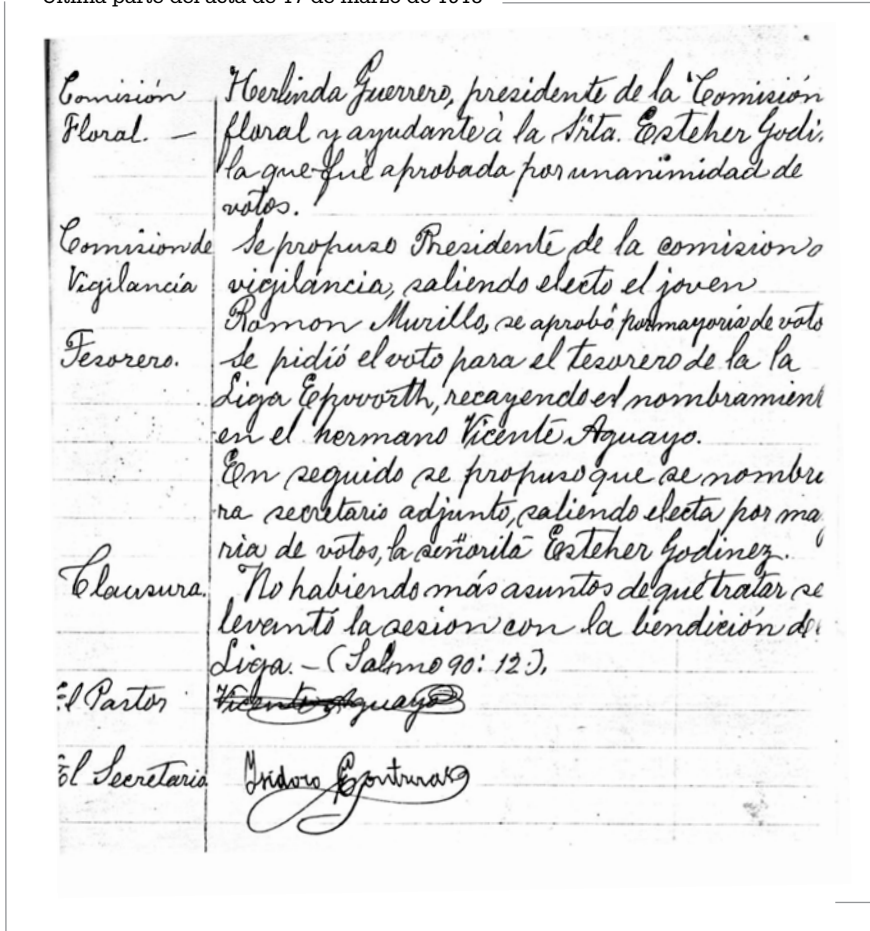 Última parte del acta de 17 de marzo de
Comisión Herlinda Guerrero, presidente de la "Comisión
Floral. — floral y ayudante à la Srta. Esteher Godi.
la que fué aprobada por unanimidad de
votos.
Comision de Se propuso Presidente de la comision
Vigilancía vigilancia, saliendo electo el joven
Ramon Murillo, se aprobó por mayoría de voto
Tesorero. Se pidió el voto para el tesorero de la la
Liga Epworth, recayendo el nombramient
en el hermano Vicente Aguayo.
En seguido se propuso que se nombre
ra secretario adjunto, saliendo electa por ma
ria de votos, la señorita Esteher Godinez.
Clausura. No habiendo más asuntos de que tratar se
levantó la sesion con la bendición de
Liga. — (Salmo 90: 12.).
El Pastor Vicente Aguayo
El Secretario Isidoro Contreras